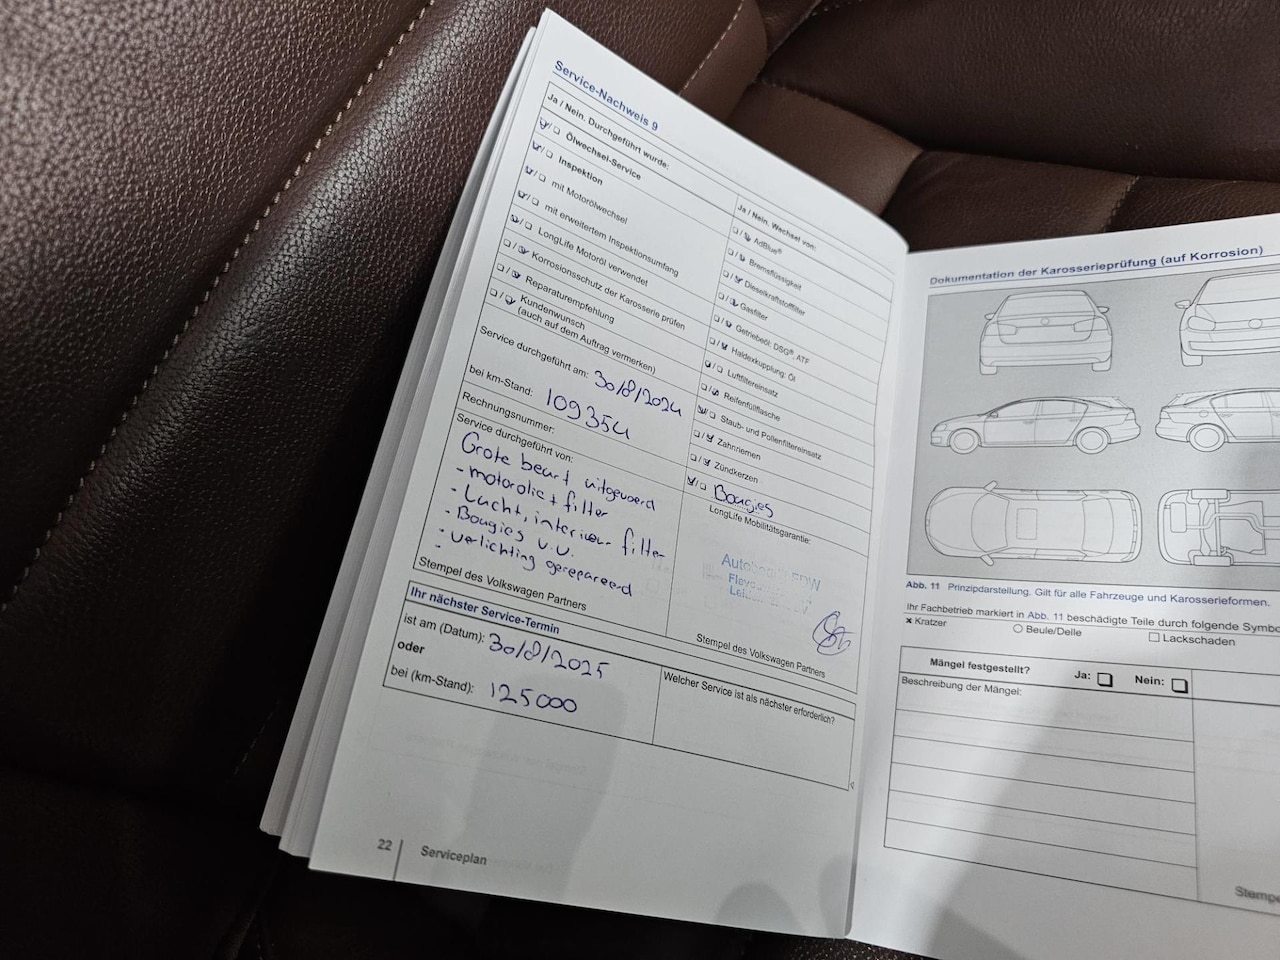 Service-Nachweis 9
Ja / Nein. Durchgeführt wurde:
Ölwechsel-Service
Inspektion
mit Motorölwechsel
mit erweitertem Inspektionsumfang
LongLife Motoröl verwendet
Korrosionsschutz der Karosserie prüfen
Reparaturempfehlung
Kundenwunsch
(auch auf dem Auftrag vermerken)
Service durchgeführt am: 30/8/2024
bei km-Stand: 109354
Rechnungsnummer:
Service durchgeführt von:
Grote beurt uitgevoerd
- motorolie + filter
- Lucht, interieur filter
- Bougies v.v.
- verlichting gerepareerd
Stempel des Volkswagen Partners
Ja / Nein. Wechsel von:
AdBlue®
Bremsflüssigkeit
Dieselkraftstofffilter
Gasfilter
Getriebeöl: DSG®, ATF
Haldexkupplung: Öl
Luftfiltereinsatz
Reifenfüllflasche
Staub- und Pollenfiltereinsatz
Zahnriemen
Zündkerzen
Bougies
LongLife Mobilitätsgarantie:
Stempel des Volkswagen Partners
Ihr nächster Service-Termin
ist am (Datum): 30/8/2025
oder
bei (km-Stand): 125000
Welcher Service ist als nächster erforderlich?
22
Serviceplan
Dokumentation der Karosserieprüfung (auf Korrosion)
Abb. 11 Prinzipdarstellung. Gilt für alle Fahrzeuge und Karosserieformen.
Ihr Fachbetrieb markiert in Abb. 11 beschädigte Teile durch folgende
× Kratzer
○ Beule/Delle
□ Lackschaden
Mängel festgestellt? Ja: Nein:
Beschreibung der Mängel: